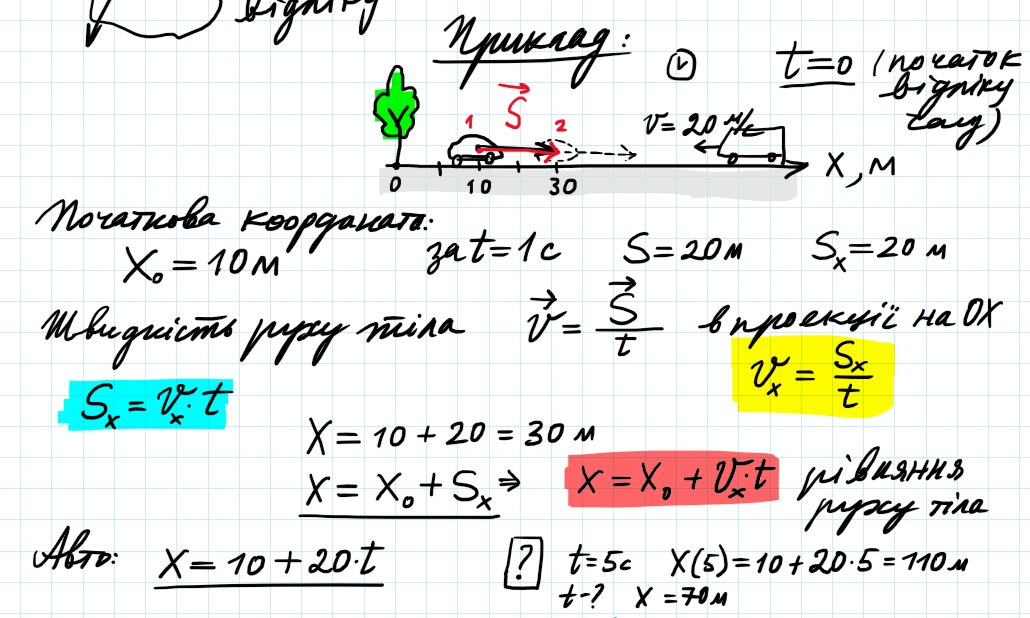 відліку
Приклад:
t=0 (початок
відліку
часу)
S
1 2
v = 20 м/с
0 10 30
X, м
Початкова координата:
X₀ = 10 м за t = 1 с S = 20 м Sₓ = 20 м
Швидкість руху тіла v⃗ = S⃗/t в проекції на OX
vₓ = Sₓ/t
Sₓ = vₓ · t
X = 10 + 20 = 30 м
X = X₀ + Sₓ ⇒ X = X₀ + vₓ · t рівняння
руху тіла
Авто: X = 10 + 20 · t ? t = 5с X(5) = 10 + 20 · 5 = 110 м
t - ? X = 70 м